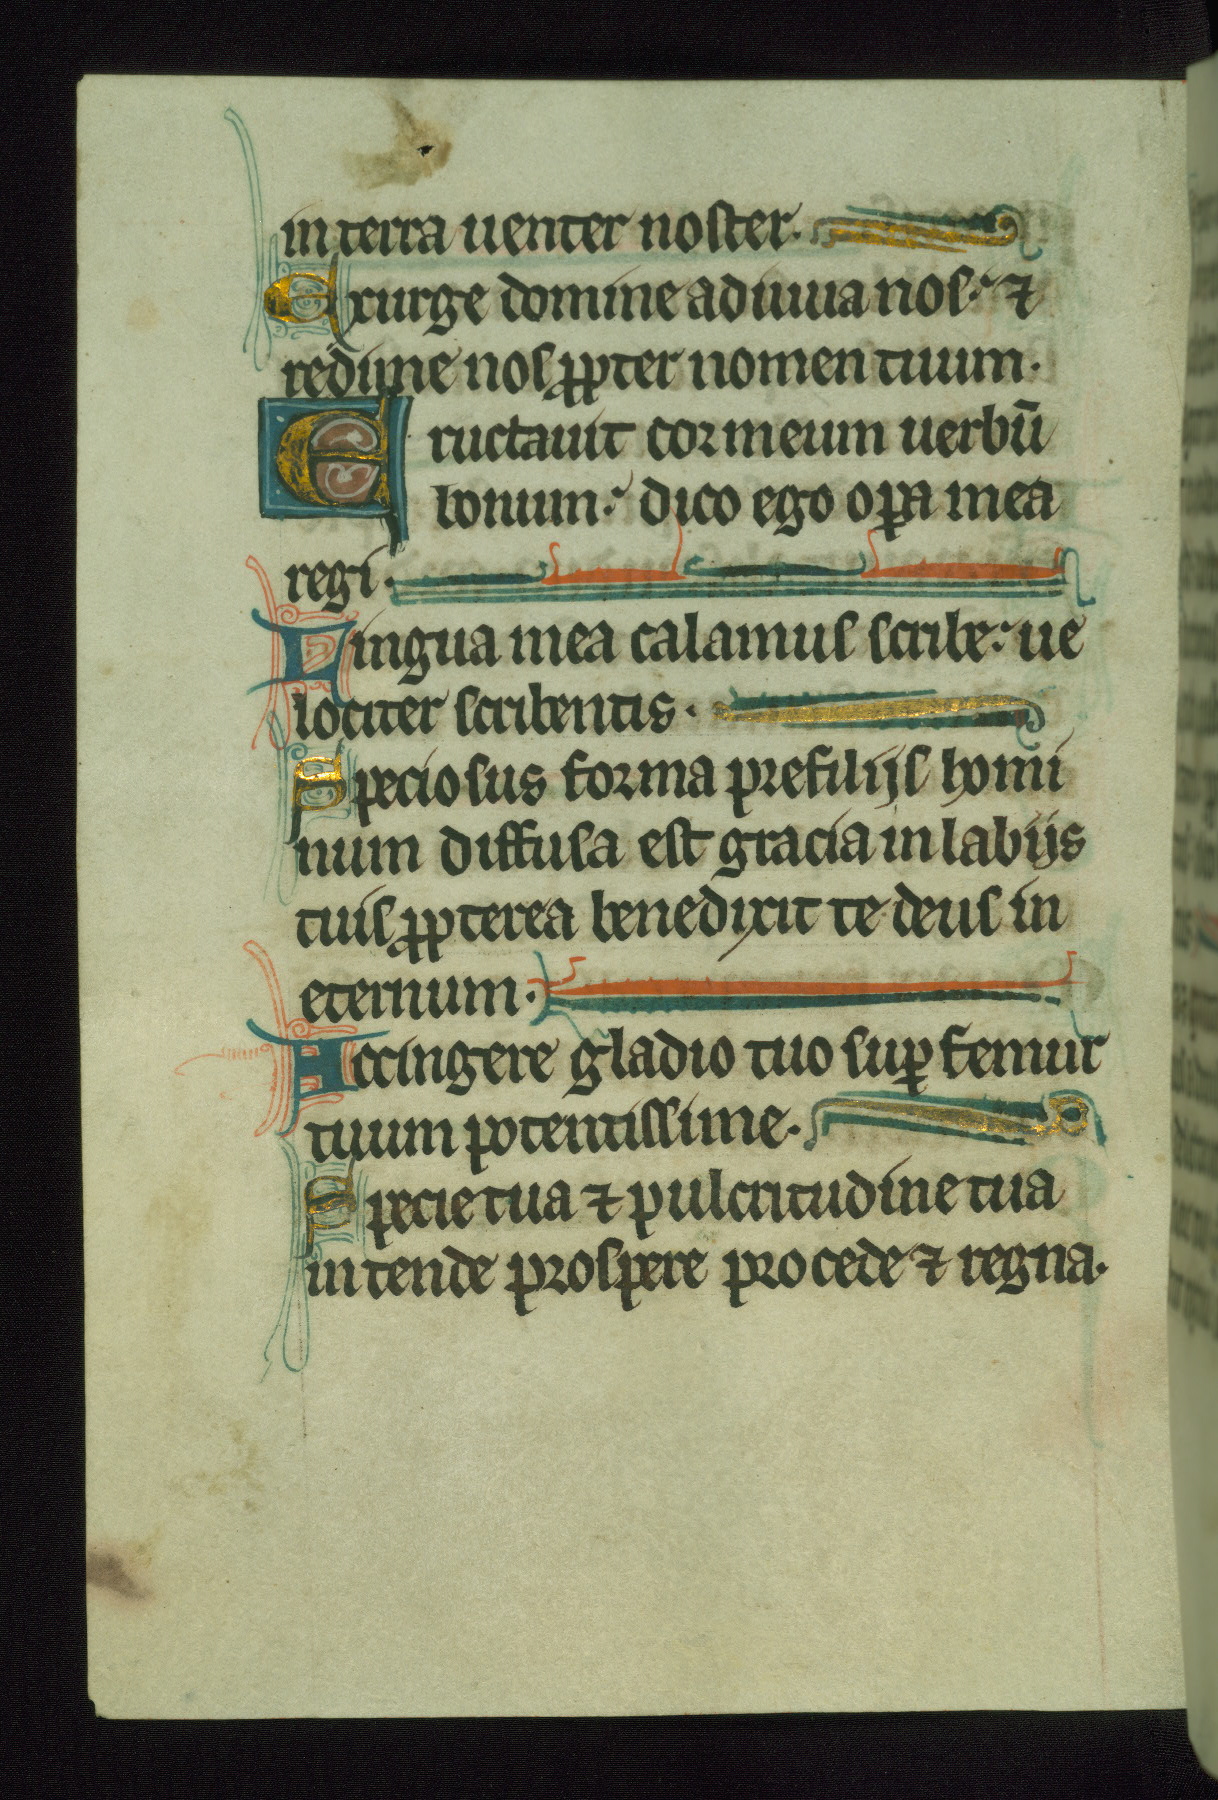 in terra uenter noster.
Exurge domine adiuua nos: ⁊
redime nos ꝓpter nomen tuum.
Eructauit cor meum uerbū
bonum: dico ego oꝑa mea
regi.
Lingua mea calamus scribe: ue
lociter scribentis.
Speciosus forma pre filijs homi
num diffusa est gracia in labijs
tuis ꝓpterea benedixit te deus in
eternum.
Accingere gladio tuo suꝑ femur
tuum potentissime.
Specie tua ⁊ pulcritudine tua
intende prospere procede ⁊ regna.